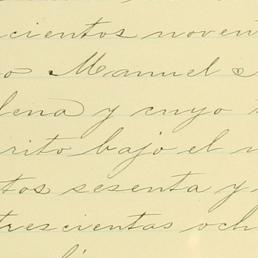 cientos noven
os Manuel
lena y cuyo
rito bajo el
tos sesenta y
trescientas och